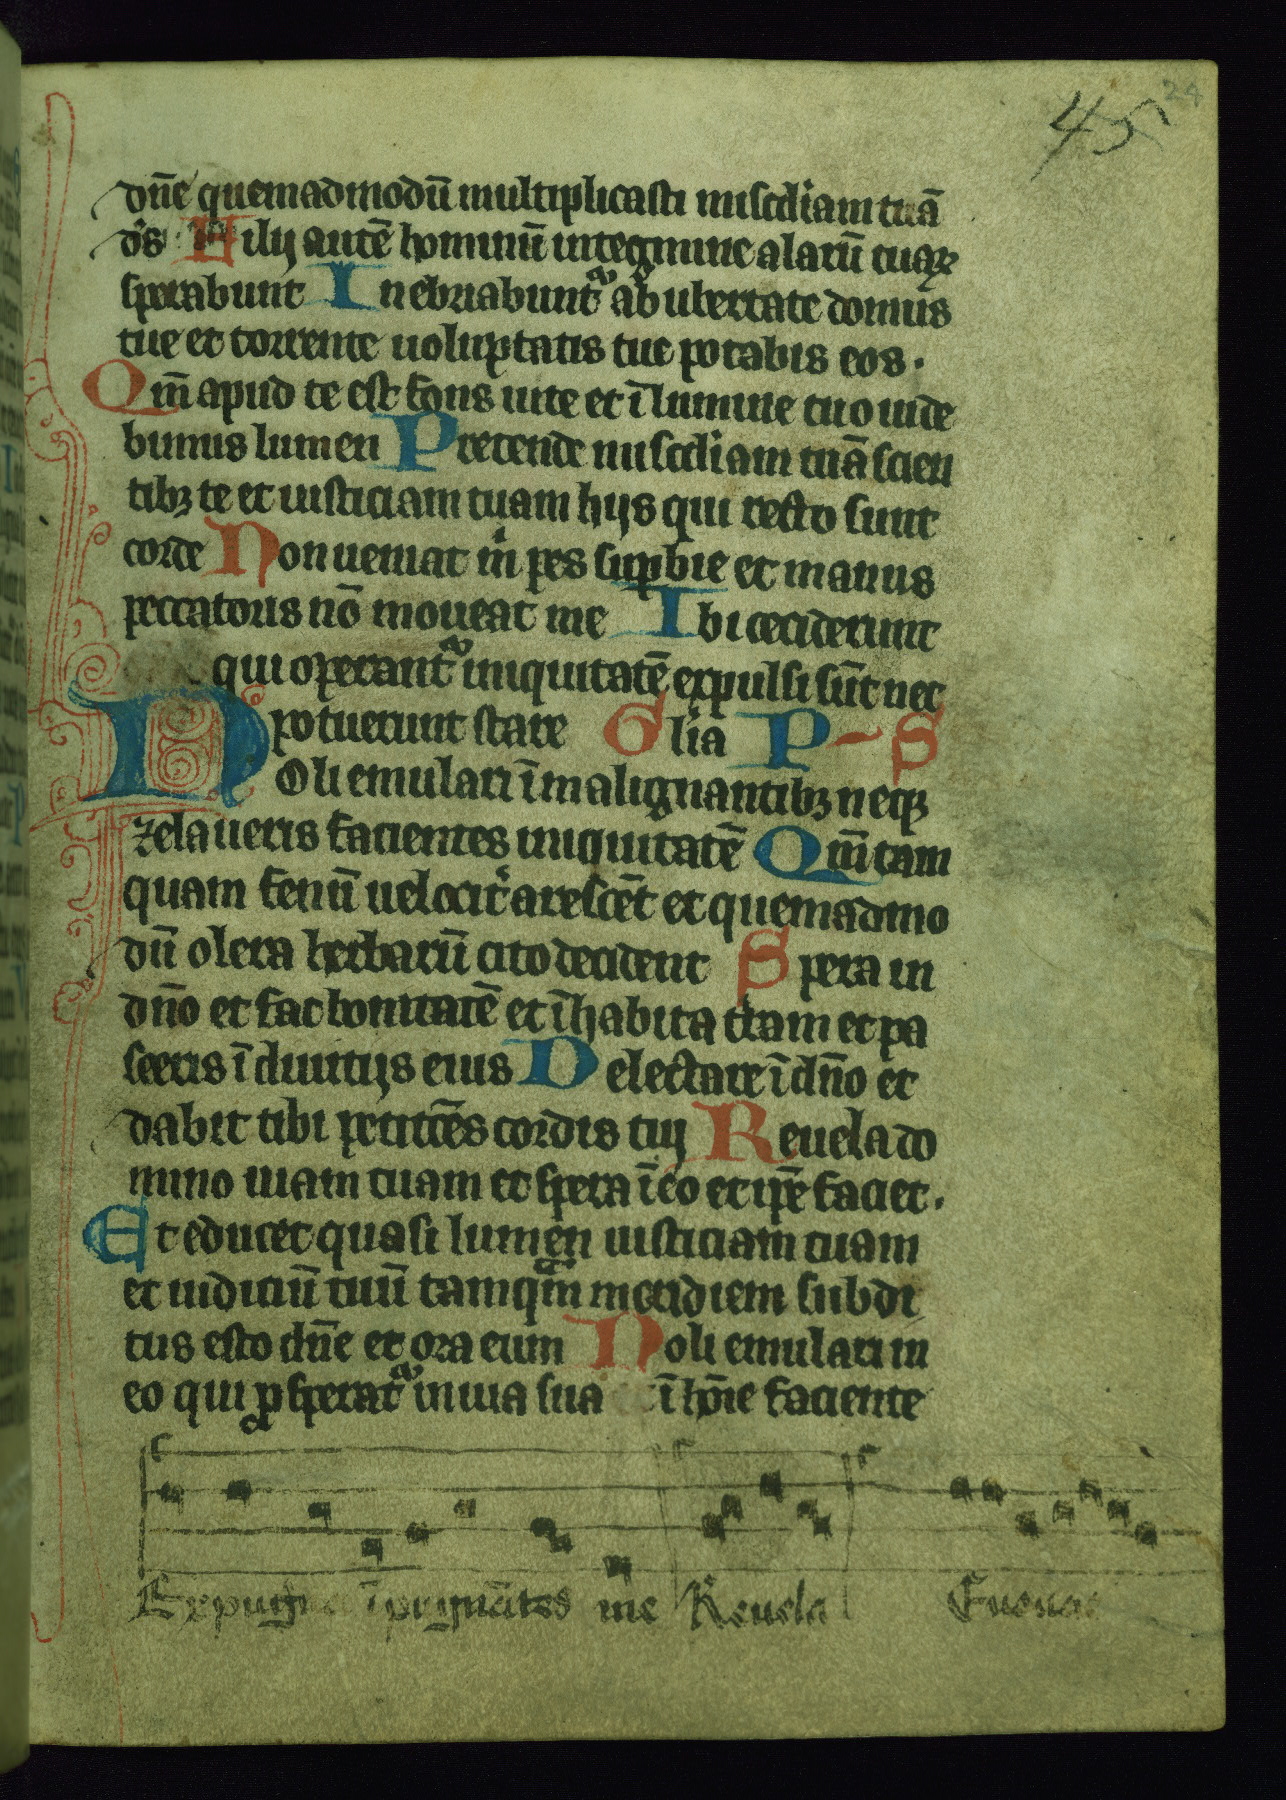 45 24
dn̄e quemadmodū multiplicasti miscdiam tuā
ds Filij autē hominū in tegmine alarū tuaꝝ
sperabunt Inebriabunt᷑ ab ubertate domus
tue et torrente uoluptatis tue potabis eos.
Qm̄ apud te est fons uite et ī lumine tuo uide
bimus lumen Pretende miscdiam tuā scien
tibꝫ te et iusticiam tuam hijs qui recto sunt
corde Non ueniat m̄ pes supbie et manus
peccatoris nō moueat me Ibi ceciderunt
qui operant᷑ iniquitatē expulsi sūt nec
potuerunt stare Glīa P S
Noli emulari ī malignantibꝫ neqꝫ
zelaueris facientes iniquitatē Qm̄ tam
quam fenū uelocit᷑ arescēt et quemadmo
dū olera herbarū cito decident Spera in
dn̄o et fac bonitatē et īhabita t̄ram et pa
sceris ī diuitijs eius Delectare ī dn̄o et
dabit tibi petitiōes cordis tuj Reuela do
mino uiam tuam et spera ī eo et ip̄e faciet.
Et educet quasi lumen iusticiam tuam
et iudiciū tuū tamqm̄ meridiem subdi
tus esto dn̄e et ora eum Noli emulari in
eo qui ꝓsperat᷑ in uia sua ī hōie faciente
Expugna īpugnātes me Reuela Euouae